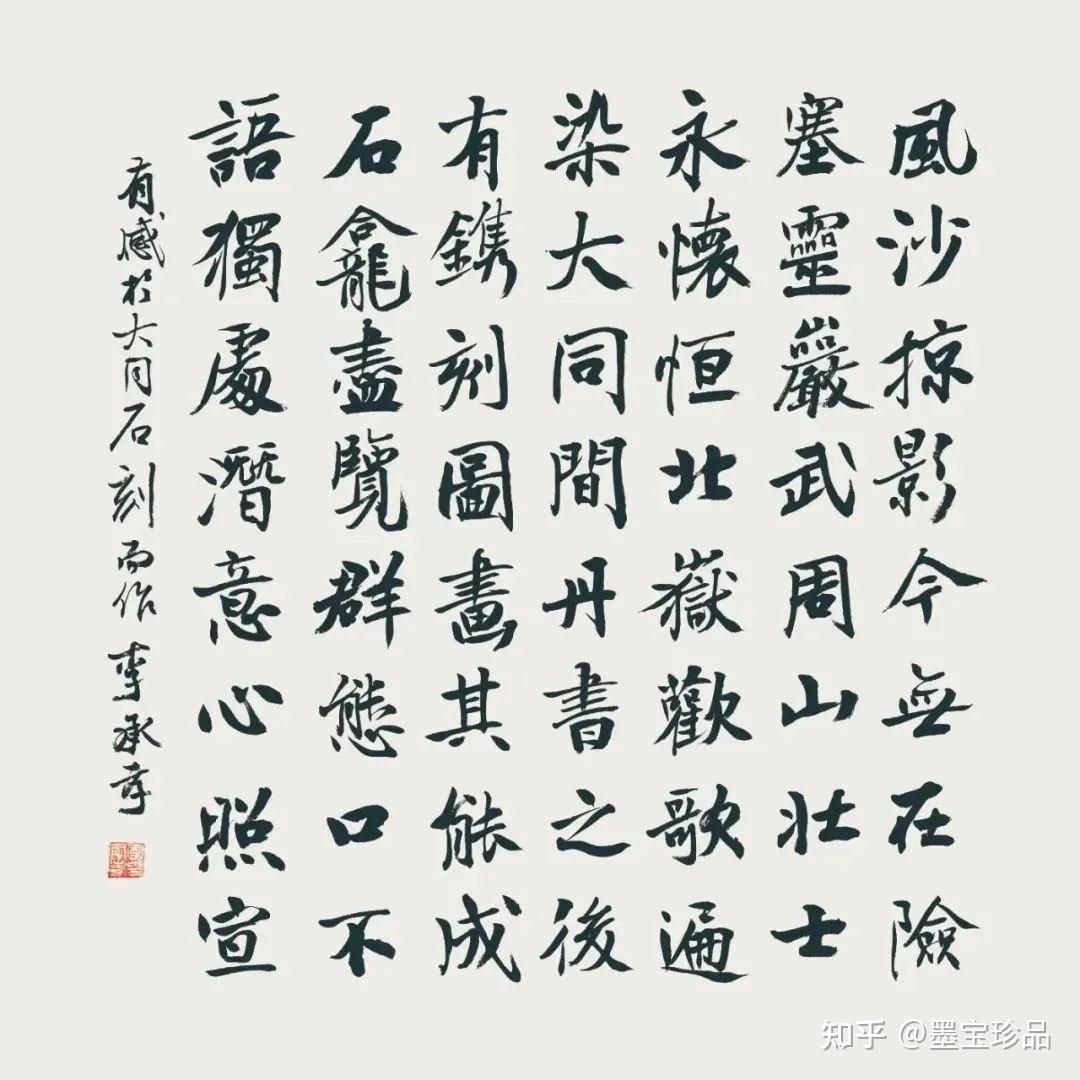 風沙掠影今無在險
塞靈巖武周山壯士
永懷恒北嶽歡歌遍
染大同間丹書之後
有鐫刻圖畫其能成
石龕盡覽群態口不
語獨處潛意心照宣
有感於大同石刻而作 李承幸
知乎 @墨宝珍品